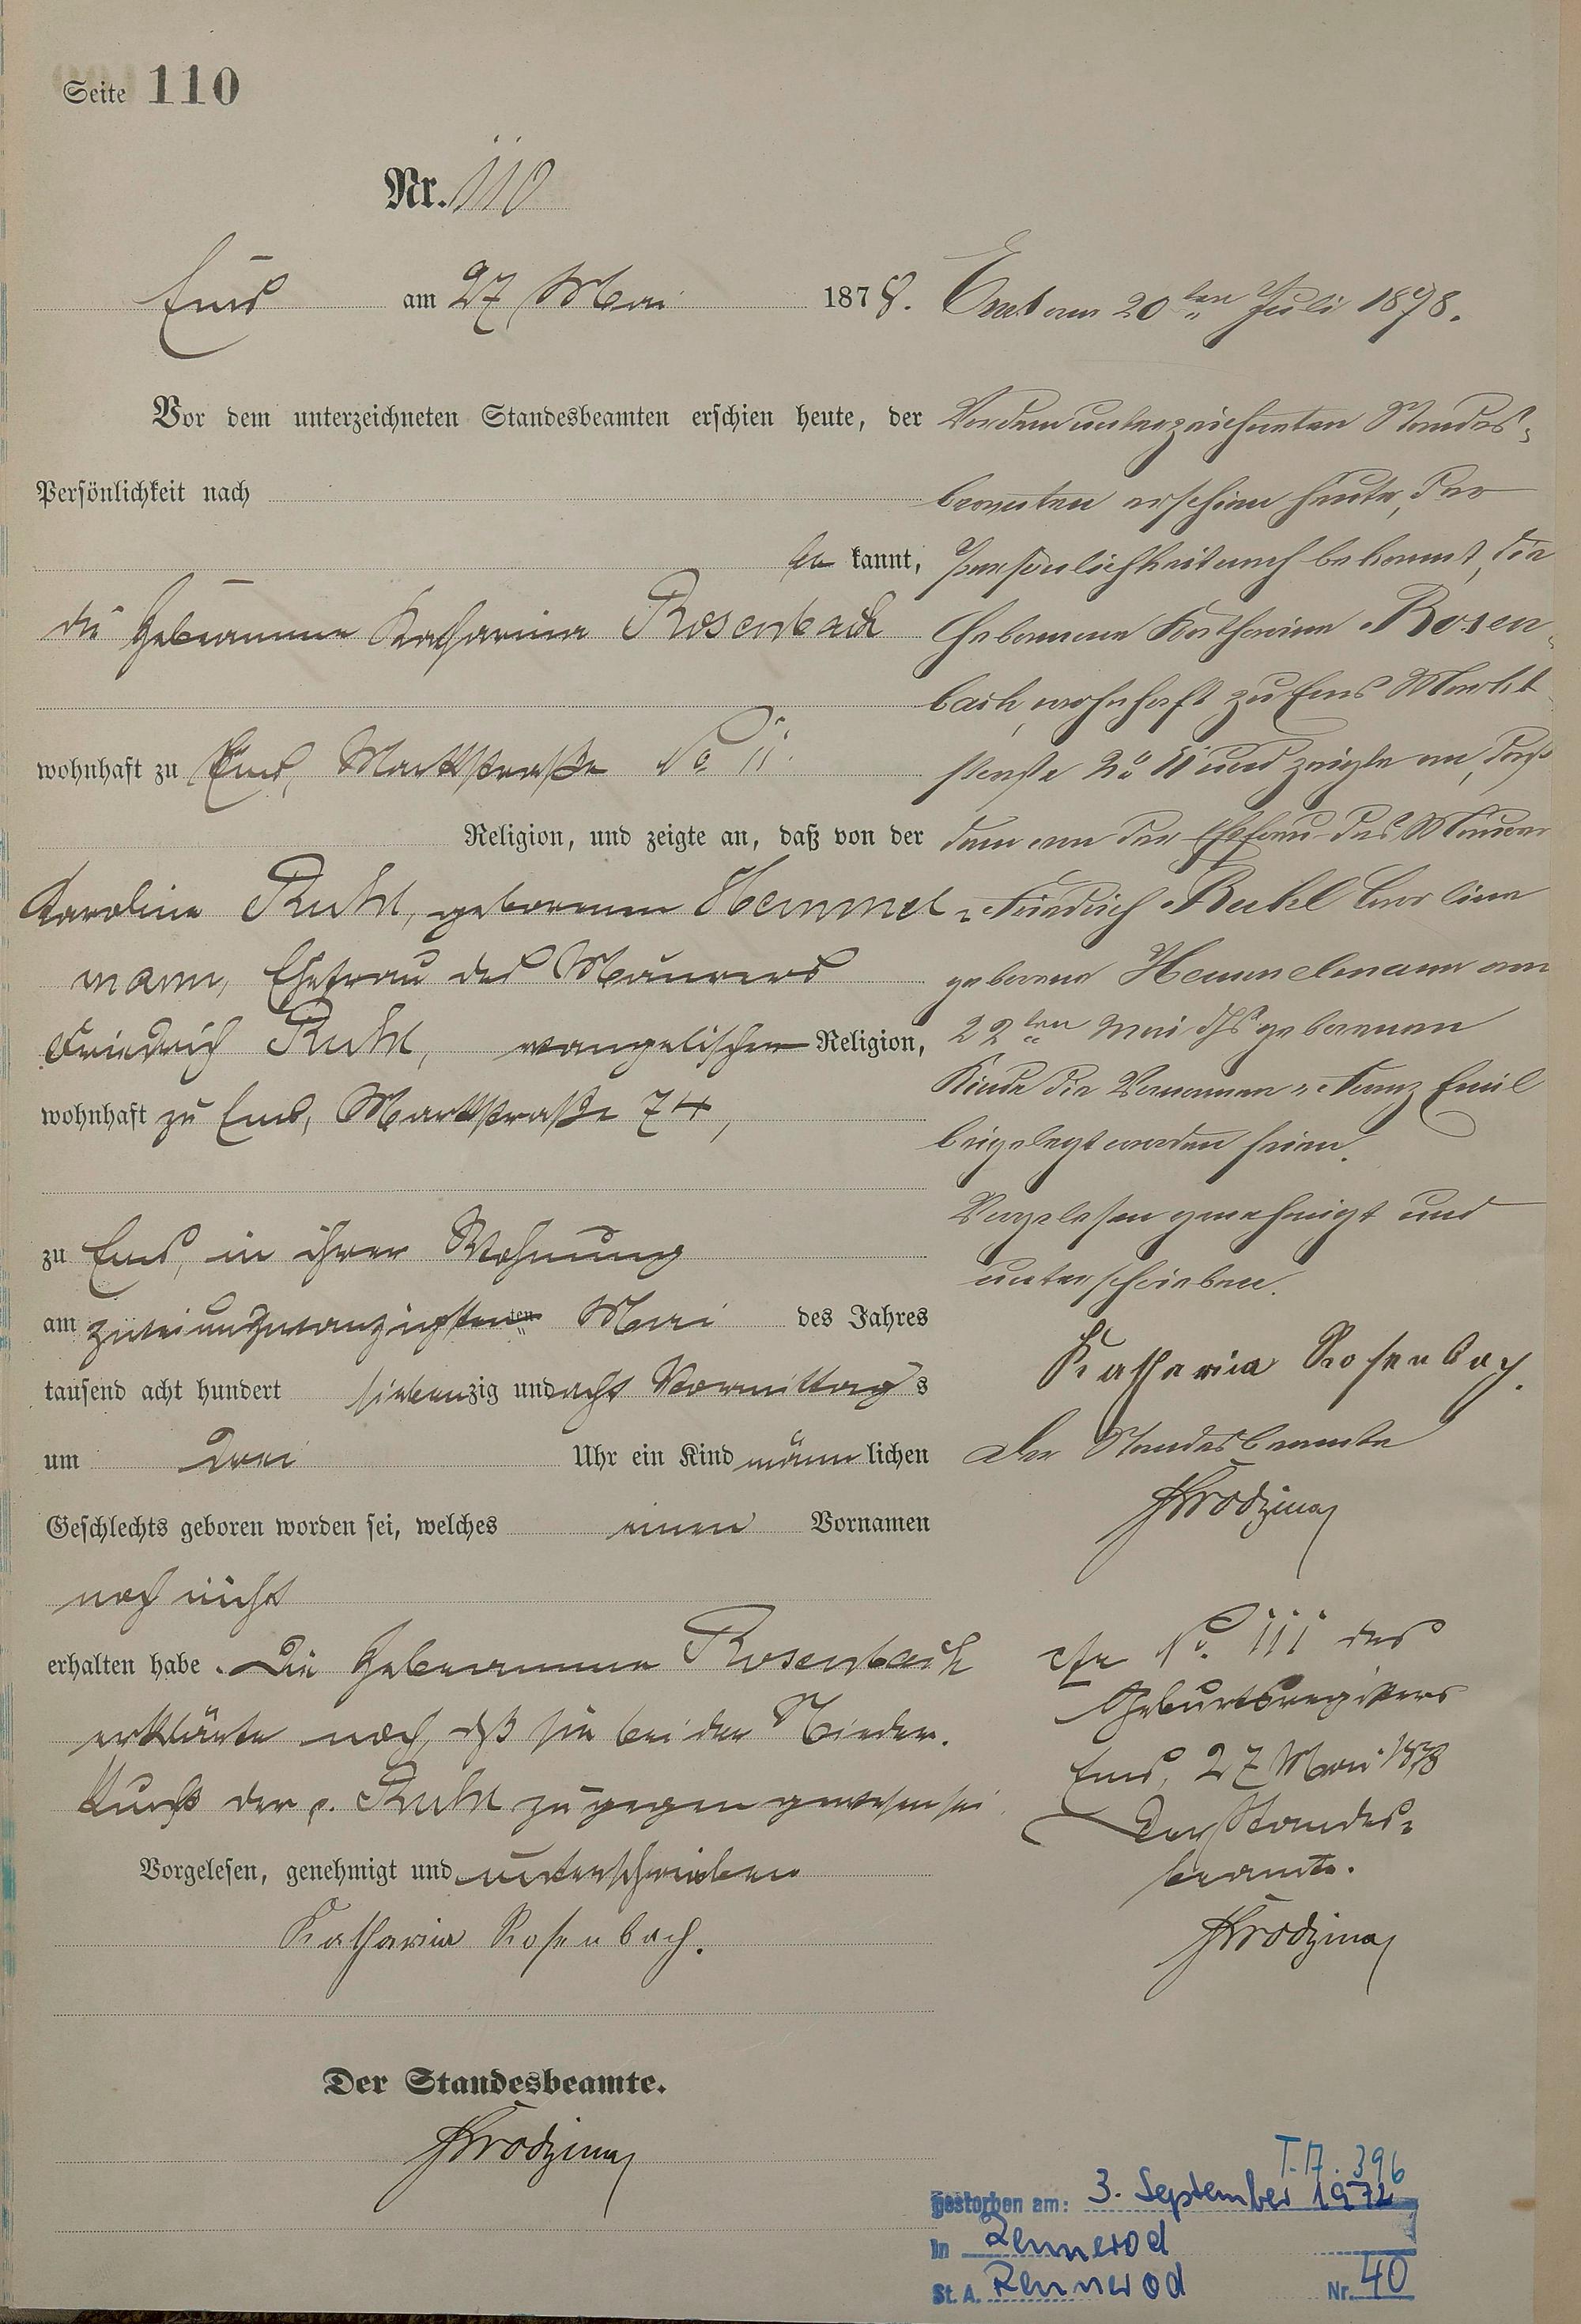 Seite 110
Nr. 110
Ems am 27 Mai 1878.
Vor dem unterzeichneten Standesbeamten erschien heute, der
Persönlichkeit nach
be kannt,
die Hebamme Katharina Rosenbach
wohnhaft zu Ems, Marktstraße No 11.
Religion, und zeigte an, daß von der
Karoline Ruhl, geborenen Hemmel-
mann, Ehefrau des Maurers
Friedrich Ruhl, evangelischer Religion,
wohnhaft zu Ems, Marktstraße 74,
zu Ems, in ihrer Wohnung
am zweiundzwanzigsten ten Mai des Jahres
tausend acht hundert siebenzig und acht Vormittags
um drei Uhr ein Kind männlichen
Geschlechts geboren worden sei, welches einen Vornamen
noch nicht
erhalten habe. Die Hebamme Rosenbach
erklärte noch, dß sie bei der Nieder-
kunft der p. Ruhl zugegen gewesen sei.
Vorgelesen, genehmigt und unterschrieben
Katharina Rosenbach.
Der Standesbeamte.
Ems am 20ten Juli 1878.
Vor dem unterzeichneten Standes-
beamten erschien heute, der
Persönlichkeit nach bekannt, die
Hebamme Katharina Rosen-
bach, wohnhaft zu Ems Markt
straße No 11 und zeigte an, daß
dem von der Ehefrau des Maurer
Friedrich Ruhl Caroline
geborene Hemmelmann am
22ten Mai ds Js geborenen
Kinde die Vornamen Franz Emil
beigelegt worden seien.
Vorgelesen genehmigt und
unterschrieben.
Katharina Rosenbach.
Der Standesbeamte
cfr No. 111 des
Geburtsregisters
Ems, 27 Mai 1878
Der Standes-
beamte.
T.A. 396
gestorben am: 3. September 1972
in Rennerod
St. A. Rennerod Nr. 40